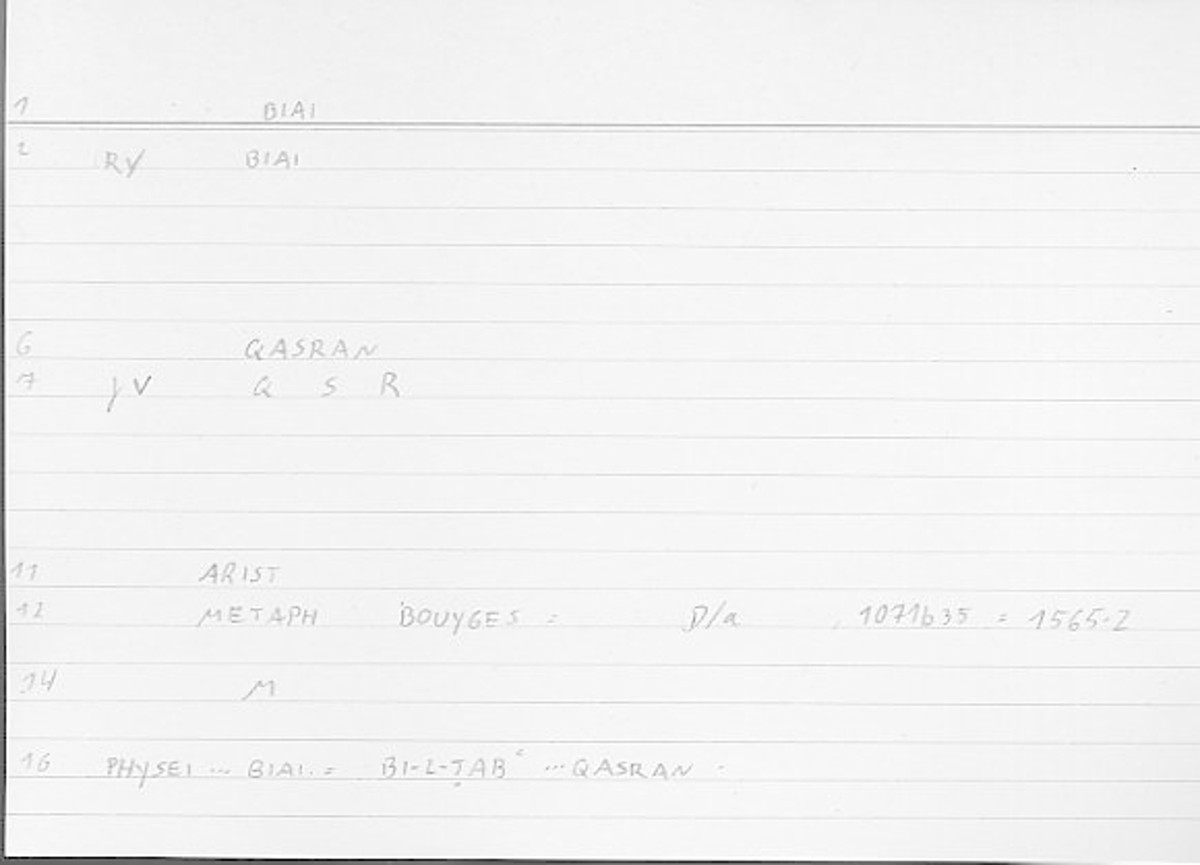 1 BIAI
2 RY BIAI
6 QASRAN
7 JV Q S R
11 ARIST
12 METAPH BOUYGES = D/a 1071b35 = 1565.2
14 M
16 PHYSEI ... BIAI. = BI-L-ṬABʿ ... QASRAN .